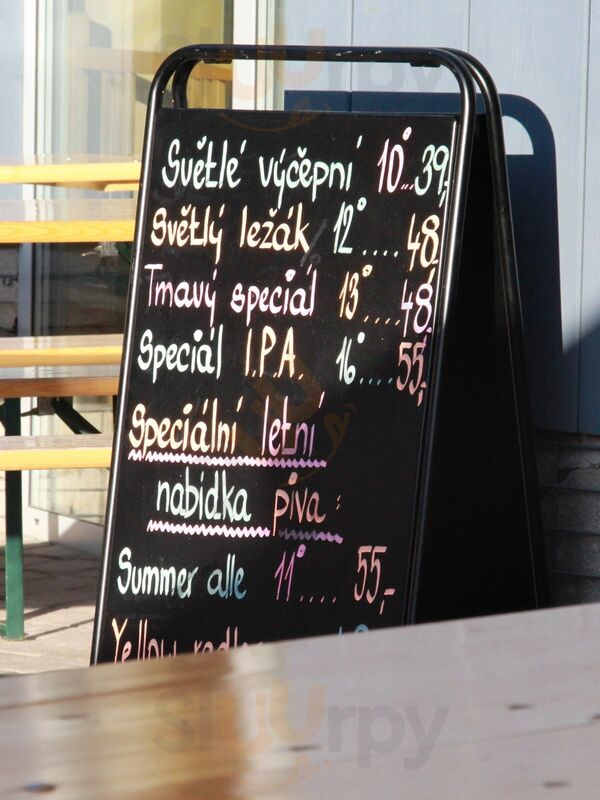 Světlé výčěpní 10°...39,
Světlý ležák 12°....48,
Tmavý speciál 13°....48,
Speciál I.P.A. 16°....55,-
Speciální letní
nabídka piva:
Summer alle 11°.....55,-
Yellow
Sluurpy